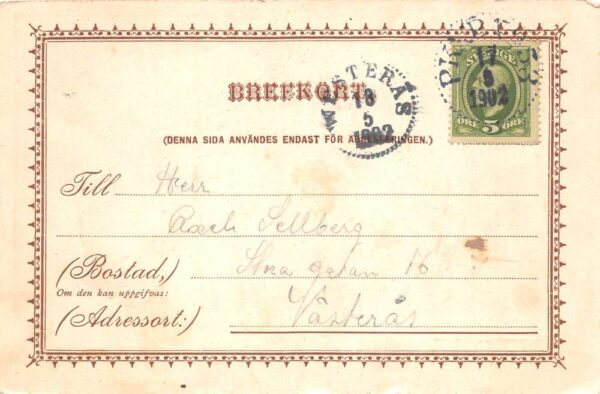 PKXP Nº 53
17
5
1902
SVERIGE
5
ÖRE 5 ÖRE
BREFKORT
WESTERÅS
18
5
1902
(DENNA SIDA ANVÄNDES ENDAST FÖR ADRESSERINGEN.)
Till Herr
Axel Sellberg
(Bostad,) Stora gatan 16
Om den kan uppgifvas:
(Adressort:) Västerås